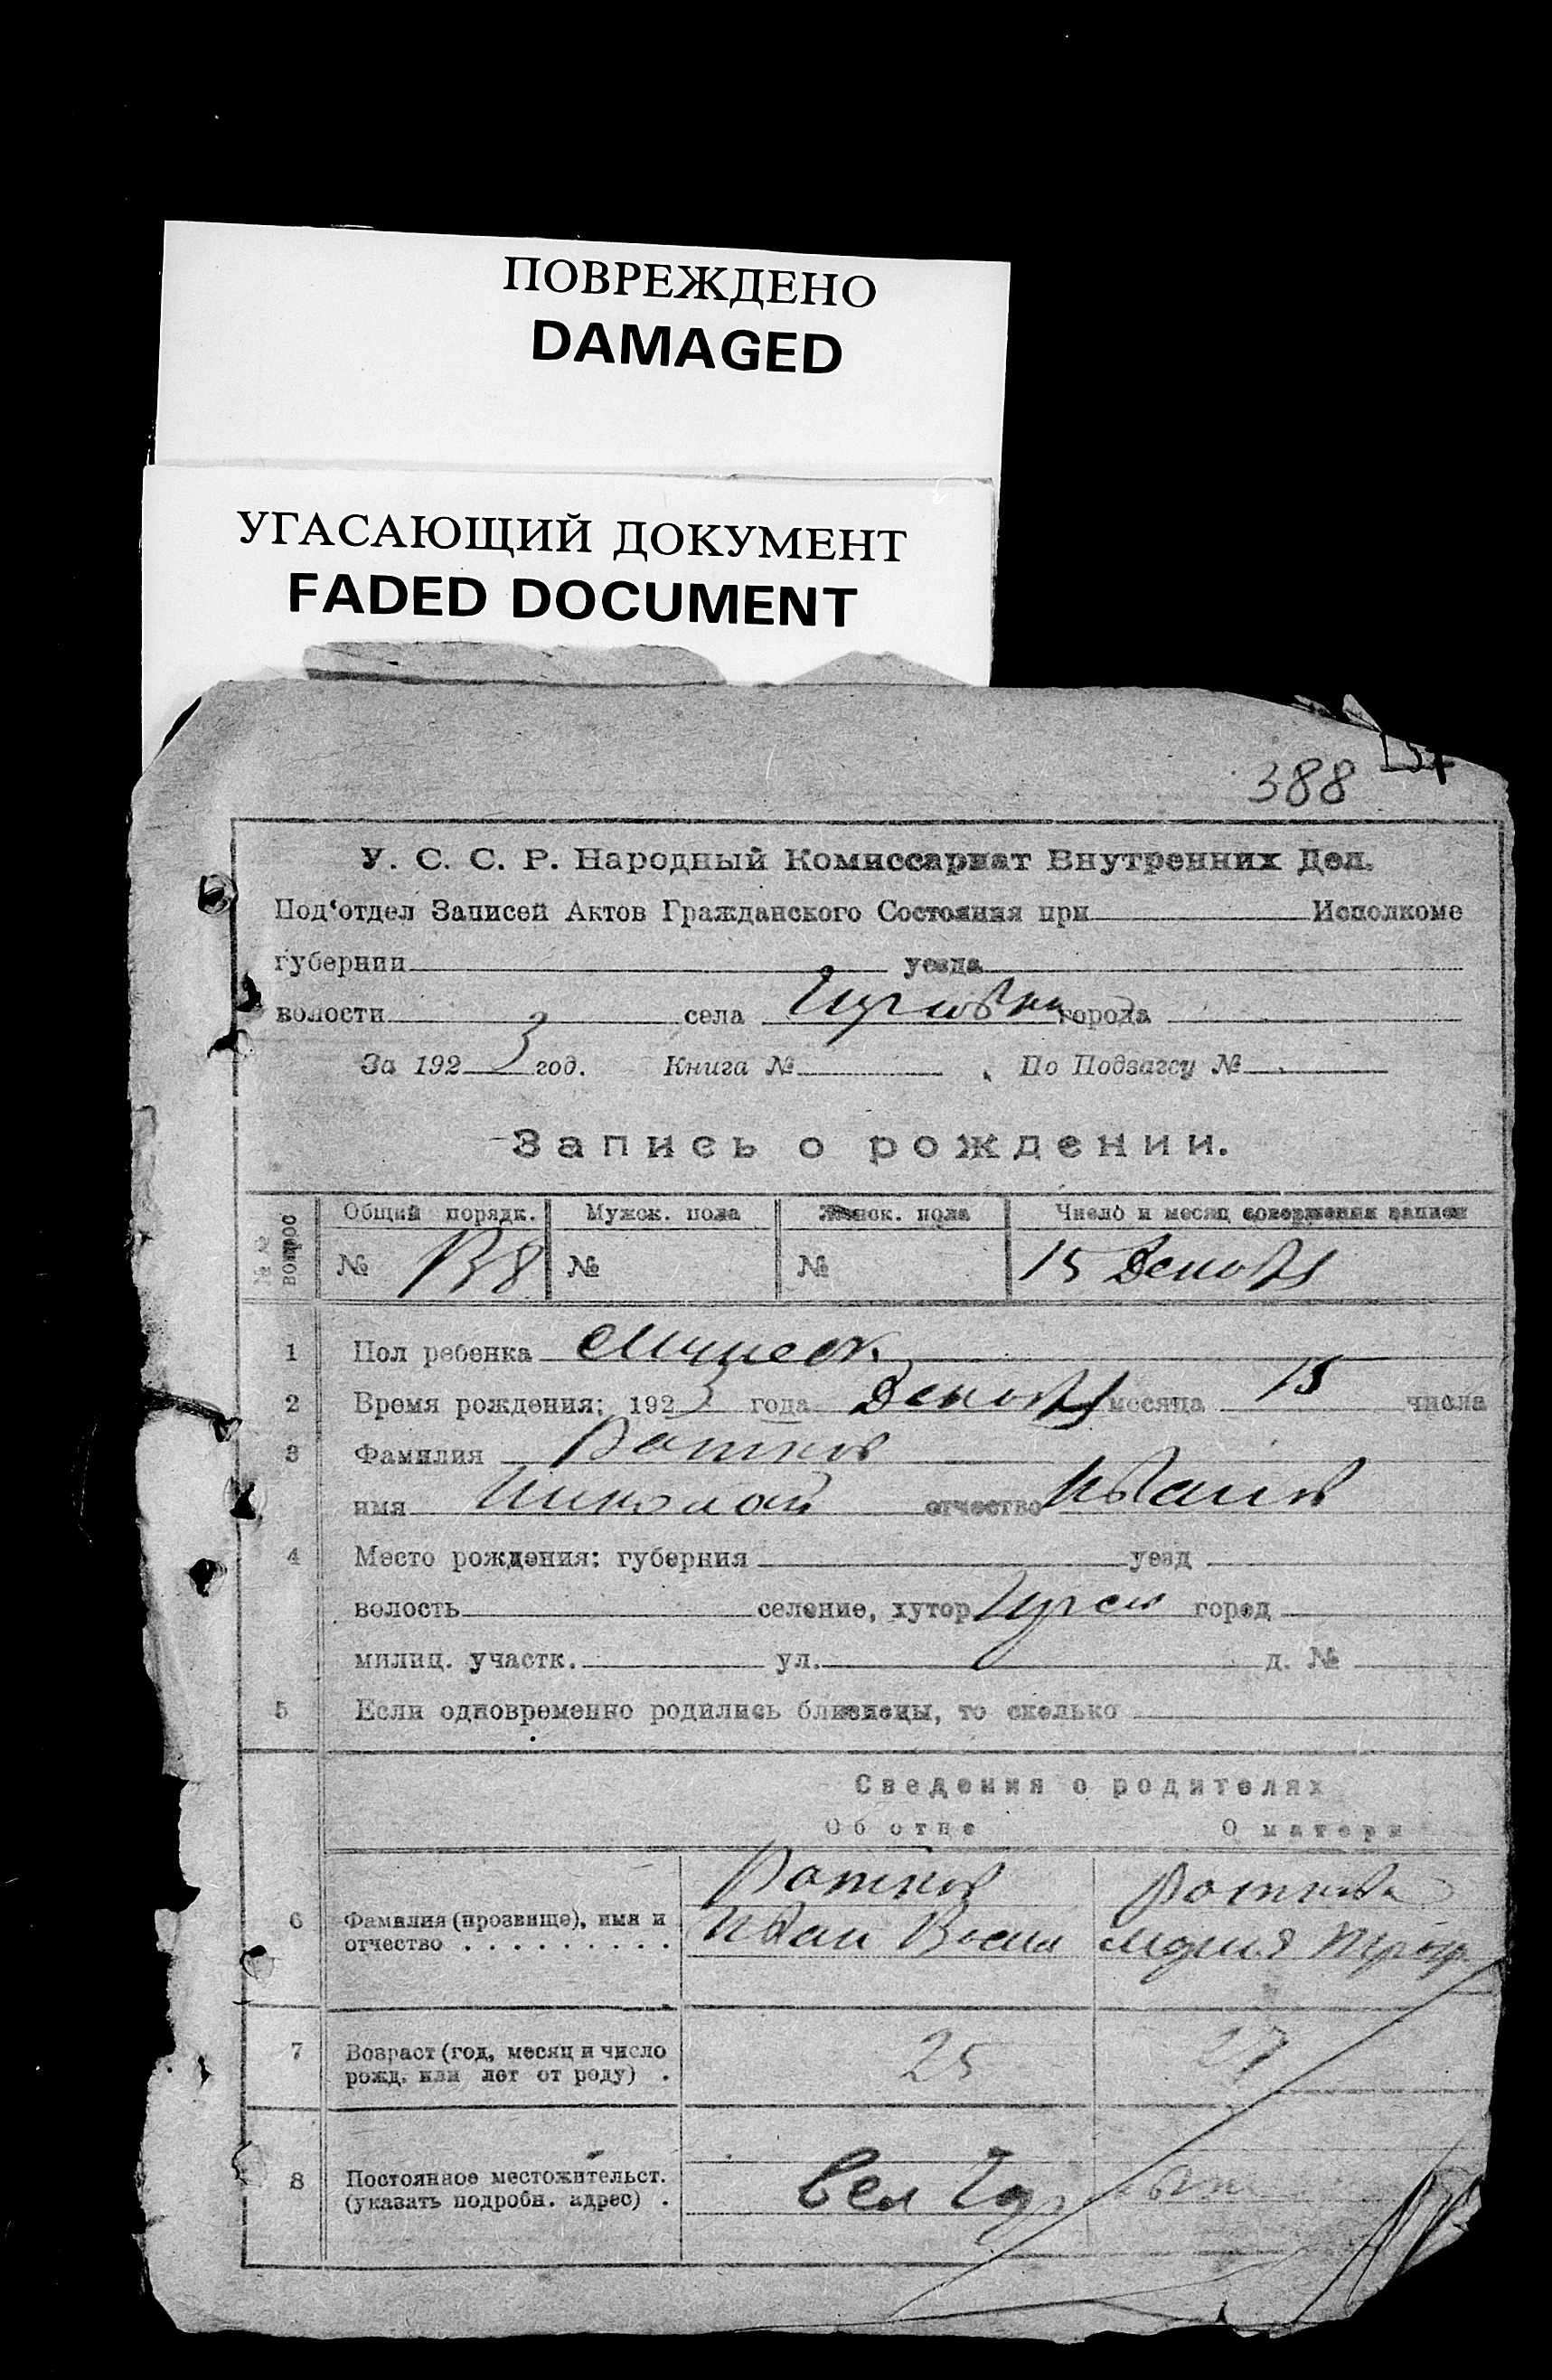 ПОВРЕЖДЕНО
DAMAGED
УГАСАЮЩИЙ ДОКУМЕНТ
FADED DOCUMENT
388
У. С. С. Р. Народный Комиссариат Внутренних Дел.
Под‘отдел Записей Актов Гражданского Состояния при Исполкоме
губернии уезда
волости села города
За 1923 год. Книга № По Подзагсу №
Запись о рождении.
№№ вопрос Общий порядк. Мужск. пола Женск. пола Число и месяц совершения записи
№ 138 № № 15
1 Пол ребенка
2 Время рождения: 1923 года месяца 15 числа
3 Фамилия
имя Николай отчество Иванов
4 Место рождения: губерния уезд
волость селение, хутор город
милиц. участк. ул. д. №
5 Если одновременно родились близнецы, то сколько
Сведения о родителях
Об отце О матери
6 Фамилия (прозвище), имя и
отчество . . . . . . . . . Иван
7 Возраст (год, месяц и число
рожд. или лет от роду) . 25 27
8 Постоянное местожительст.
(указать подробн. адрес) .